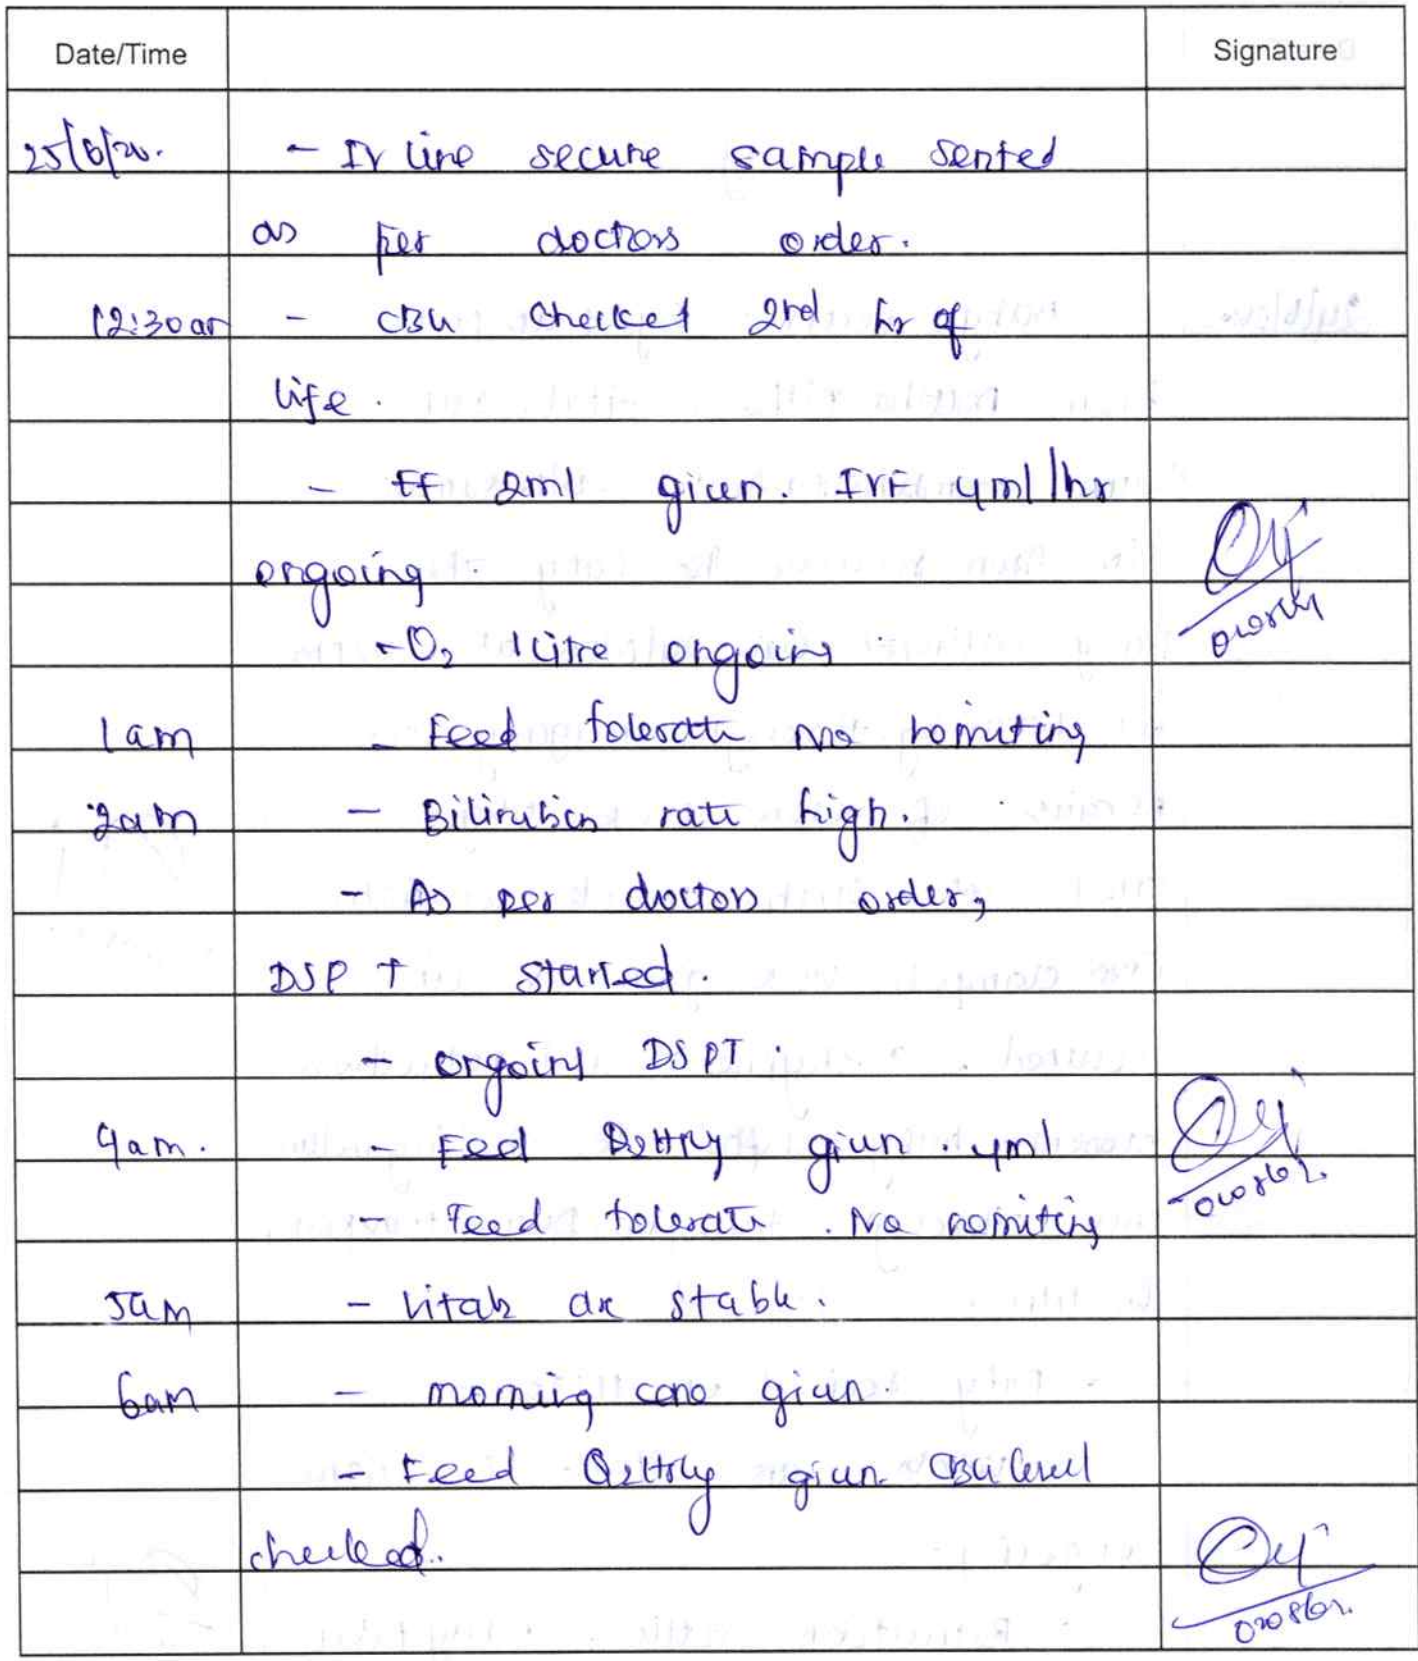 Date/Time Signature
25/6/20. - IV line secure sample sented
as per doctors order.
12:30am - checked 2nd hr of
life.
- FF 2ml given. IVF 4ml/hr
ongoing
- O2 1 litre ongoing
1am - Feed tolerate No vomiting
2am - Bilirubin rate high.
- As per doctors order,
DSPT started.
- ongoing DSPT.
4am. - Feed Q2Hrly given. 4ml
- Feed tolerate. No vomiting
5am - Vitals are stable.
6am - morning care given
- Feed Q2Hrly given level
checked.